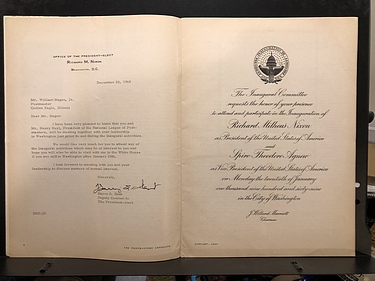 OFFICE OF THE PRESIDENT-ELECT
RICHARD M. NIXON
WASHINGTON, D.C.
December 26, 1968
Mr. William
Postmaster
Illinois
Dear Mr.
I have been very pleased to learn that you and
President of the National League of Post-
masters, will be meeting together with your leadership
in Washington just prior to and during the Inaugural activities.
We would like very much for you to attend any of
the Inaugural activities which may be of interest to you and
hope you will also be able to visit with me in the White House
if you are still in Washington after January 20th.
I look forward to meeting with you and your
leadership to discuss matters of mutual interest.
Deputy Counsel to
The President-elect
The Inaugural Committee
requests the honor of your presence
to attend and participate in the Inauguration of
Richard Milhous Nixon
as President of the United States of America
and
Spiro Theodore Agnew
as Vice President of the United States of America
on Monday the twentieth of January
one thousand nine hundred and sixty-nine
in the City of Washington
J. Willard Marriott
Chairman
JANUARY, 1969